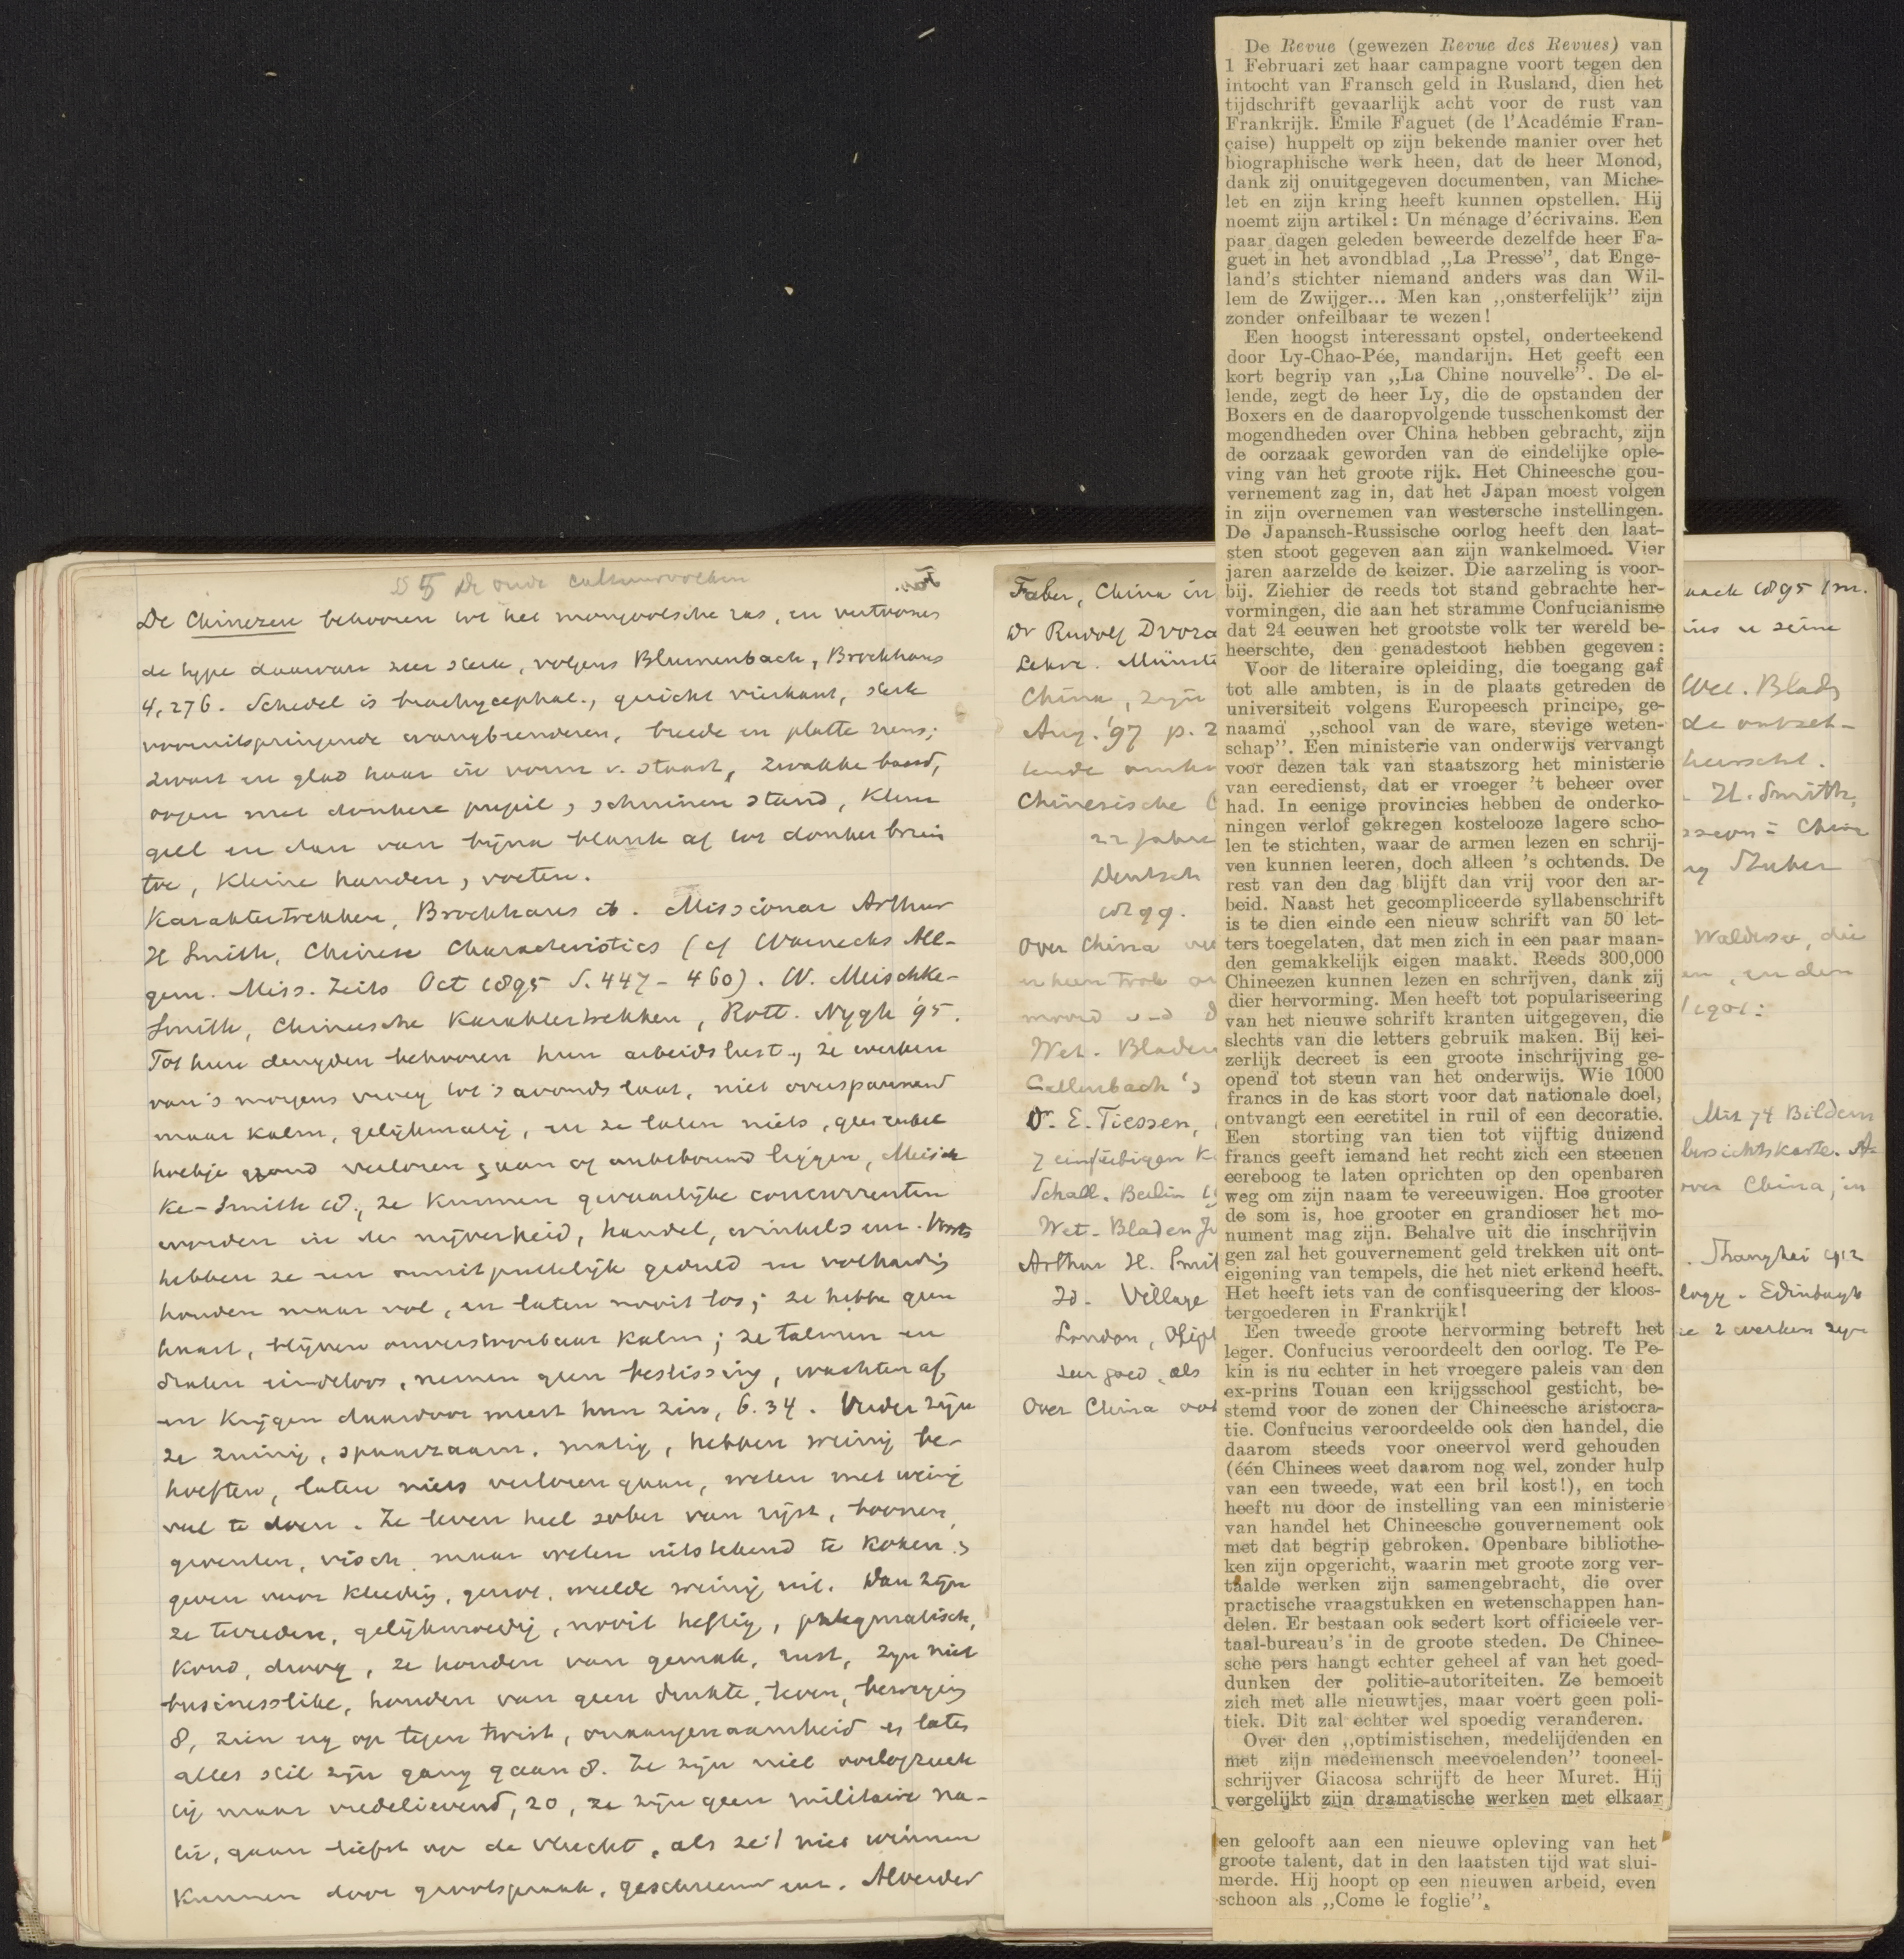 § 5 De oude cultuurvolken
De Chineezen behooren tot het mongoolsche ras, en vertoonen
de type daarvan zeer sterk, volgens Blumenbach, Brockhaus
4, 276. Schedel is brachycephal., gezicht vierkant, sterk
vooruitspringende wangbeenderen, breede en platte neus;
zwart en glad haar in vorm v. staart, zwakke baard,
oogen met donkere pupil, schuinen stand, kleur
geel en dan van bijna blank af tot donker bruin
toe, kleine handen, voeten.
Karaktertrekken, Brockhaus ib. Missionar Arthur
H Smith, Chinese Characteristics (cf Warnecks All-
gem. Miss. Zeits Oct 1895 S. 447-460). W. Meischke-
Smith, Chineesche Karaktertrekken, Rott. Nygh '95.
Tot hun deugden behooren hun arbeidslust, ze werken
van 's morgens vroeg tot 's avonds laat, niet overspannend
maar kalm, gelijkmatig, en ze laten niets, geen enkel
hoekje grond verloren gaan of onbebouwd liggen, Meisch
ke-Smith 18, ze kunnen gevaarlijke concurrenten
worden in de nijverheid, handel, winkels enz. Voorts
hebben ze een onuitputtelijk geduld en volharding
houden maar vol, en laten nooit los; ze hebbe geen
haast, blijven onverstoorbaar kalm; ze talmen en
dralen eindeloos, nemen geen beslissing, wachten af
en krijgen daardoor meest hun zin, 6. 34. Verder zijn
ze zuinig, spaarzaam, matig, hebben weinig be-
hoeften, laten niets verloren gaan, weten met weinig
veel te doen. Ze leven heel sober van rijst, boonen,
groenten, visch maar weten uitstekend te koken,
geven voor kleeding, genot, weelde weinig uit. Dan zijn
ze tevreden, gelijkmoedig, nooit heftig, phlegmatisch,
koud, droog, ze houden van gemak, rust, zijn niet
businesslike, houden van geen drukte, leven, beweging
8, zien erg op tegen twist, onaangenaamheid en laten
alles stil zijn gang gaan 8. Ze zijn niet oorlogzuch
tig maar vredelievend, 20, ze zijn geen militaire na-
tie, gaan liefst op de vlucht, als ze 't niet winnen
kunnen door grootspraak, geschreeuw enz. Alverder
Faber, China in
Dr Rudolf Dvora
Lehre. Münste
China, zijn
Aug. '97 p. 2
Chinesische
22 Jahre
Deutsch
1899.
Over China
Wet. Bladen
Callenbach's
Dr. E. Tiessen,
7 einfarbigen K
Schall. Berlin
Wet. Bladen
Arthur H. Smit
Id. Village
London,
zeer goed, als
Over China ook
De Revue (gewezen Revue des Revues) van
1 Februari zet haar campagne voort tegen den
intocht van Fransch geld in Rusland, dien het
tijdschrift gevaarlijk acht voor de rust van
Frankrijk. Emile Faguet (de l'Académie Fran-
çaise) huppelt op zijn bekende manier over het
biographische werk heen, dat de heer Monod,
dank zij onuitgegeven documenten, van Miche-
let en zijn kring heeft kunnen opstellen. Hij
noemt zijn artikel: Un ménage d'écrivains. Een
paar dagen geleden beweerde dezelfde heer Fa-
guet in het avondblad „La Presse”, dat Enge-
land's stichter niemand anders was dan Wil-
lem de Zwijger... Men kan „onsterfelijk” zijn
zonder onfeilbaar te wezen!
Een hoogst interessant opstel, onderteekend
door Ly-Chao-Pée, mandarijn. Het geeft een
kort begrip van „La Chine nouvelle”. De el-
lende, zegt de heer Ly, die de opstanden der
Boxers en de daaropvolgende tusschenkomst der
mogendheden over China hebben gebracht, zijn
de oorzaak geworden van de eindelijke ople-
ving van het groote rijk. Het Chineesche gou-
vernement zag in, dat het Japan moest volgen
in zijn overnemen van westersche instellingen.
De Japansch-Russische oorlog heeft den laat-
sten stoot gegeven aan zijn wankelmoed. Vier
jaren aarzelde de keizer. Die aarzeling is voor-
bij. Ziehier de reeds tot stand gebrachte her-
vormingen, die aan het stramme Confucianisme
dat 24 eeuwen het grootste volk ter wereld be-
heerschte, den genadestoot hebben gegeven:
Voor de literaire opleiding, die toegang gaf
tot alle ambten, is in de plaats getreden de
universiteit volgens Europeesch principe, ge-
naamd „school van de ware, stevige weten-
schap”. Een ministerie van onderwijs vervangt
voor dezen tak van staatszorg het ministerie
van eeredienst, dat er vroeger 't beheer over
had. In eenige provincies hebben de onderko-
ningen verlof gekregen kostelooze lagere scho-
len te stichten, waar de armen lezen en schrij-
ven kunnen leeren, doch alleen 's ochtends. De
rest van den dag blijft dan vrij voor den ar-
beid. Naast het gecompliceerde syllabenschrift
is te dien einde een nieuw schrift van 50 let-
ters toegelaten, dat men zich in een paar maan-
den gemakkelijk eigen maakt. Reeds 300,000
Chineezen kunnen lezen en schrijven, dank zij
dier hervorming. Men heeft tot populariseering
van het nieuwe schrift kranten uitgegeven, die
slechts van die letters gebruik maken. Bij kei-
zerlijk decreet is een groote inschrijving ge-
opend tot steun van het onderwijs. Wie 1000
francs in de kas stort voor dat nationale doel,
ontvangt een eeretitel in ruil of een decoratie.
Een storting van tien tot vijftig duizend
francs geeft iemand het recht zich een steenen
eereboog te laten oprichten op den openbaren
weg om zijn naam te vereeuwigen. Hoe grooter
de som is, hoe grooter en grandioser het mo-
nument mag zijn. Behalve uit die inschrijvin
gen zal het gouvernement geld trekken uit ont-
eigening van tempels, die het niet erkend heeft.
Het heeft iets van de confisqueering der kloos-
tergoederen in Frankrijk!
Een tweede groote hervorming betreft het
leger. Confucius veroordeelt den oorlog. Te Pe-
kin is nu echter in het vroegere paleis van den
ex-prins Touan een krijgsschool gesticht, be-
stemd voor de zonen der Chineesche aristocra-
tie. Confucius veroordeelde ook den handel, die
daarom steeds voor oneervol werd gehouden
(één Chinees weet daarom nog wel, zonder hulp
van een tweede, wat een bril kost!), en toch
heeft nu door de instelling van een ministerie
van handel het Chineesche gouvernement ook
met dat begrip gebroken. Openbare bibliothe-
ken zijn opgericht, waarin met groote zorg ver-
taalde werken zijn samengebracht, die over
practische vraagstukken en wetenschappen han-
delen. Er bestaan ook sedert kort officieele ver-
taal-bureau's in de groote steden. De Chinee-
sche pers hangt echter geheel af van het goed-
dunken der politie-autoriteiten. Ze bemoeit
zich met alle nieuwtjes, maar voert geen poli-
tiek. Dit zal echter wel spoedig veranderen.
Over den „optimistischen, medelijdenden en
met zijn medemensch meevoelenden” tooneel-
schrijver Giacosa schrijft de heer Muret. Hij
vergelijkt zijn dramatische werken met elkaar
en gelooft aan een nieuwe opleving van het
groote talent, dat in den laatsten tijd wat slui-
merde. Hij hoopt op een nieuwen arbeid, even
schoon als „Come le foglie”.
1895 1 m.
u seine
Wet. Blad
de ontzet-
heerscht.
H. Smith,
Waldersee, die
en, en den
1901:
Mit 74 Bildern
bersichtskarte.
over China, in
Shanghai 1912
logy. Edinburgh
ie 2 werken zijn